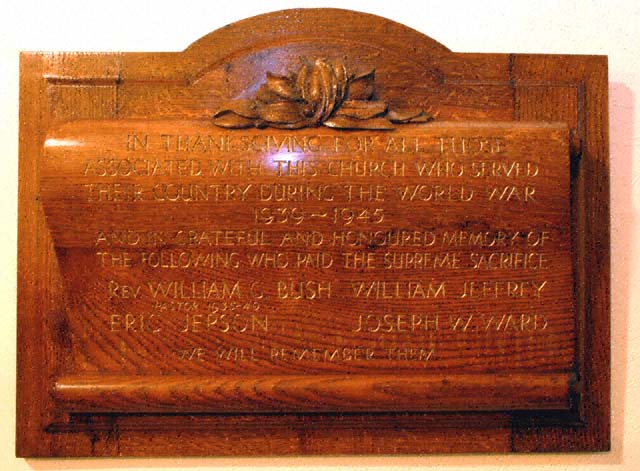 IN THANKSGIVING FOR ALL THOSE
ASSOCIATED WITH THIS CHURCH WHO SERVED
THEIR COUNTRY DURING THE WORLD WAR
1939~1945
AND IN GRATEFUL AND HONOURED MEMORY OF
THE FOLLOWING WHO PAID THE SUPREME SACRIFICE
REV. WILLIAM C. BUSH WILLIAM JEFFREY
PASTOR 1935-40
ERIC JEPSON JOSEPH W. WARD
WE WILL REMEMBER THEM